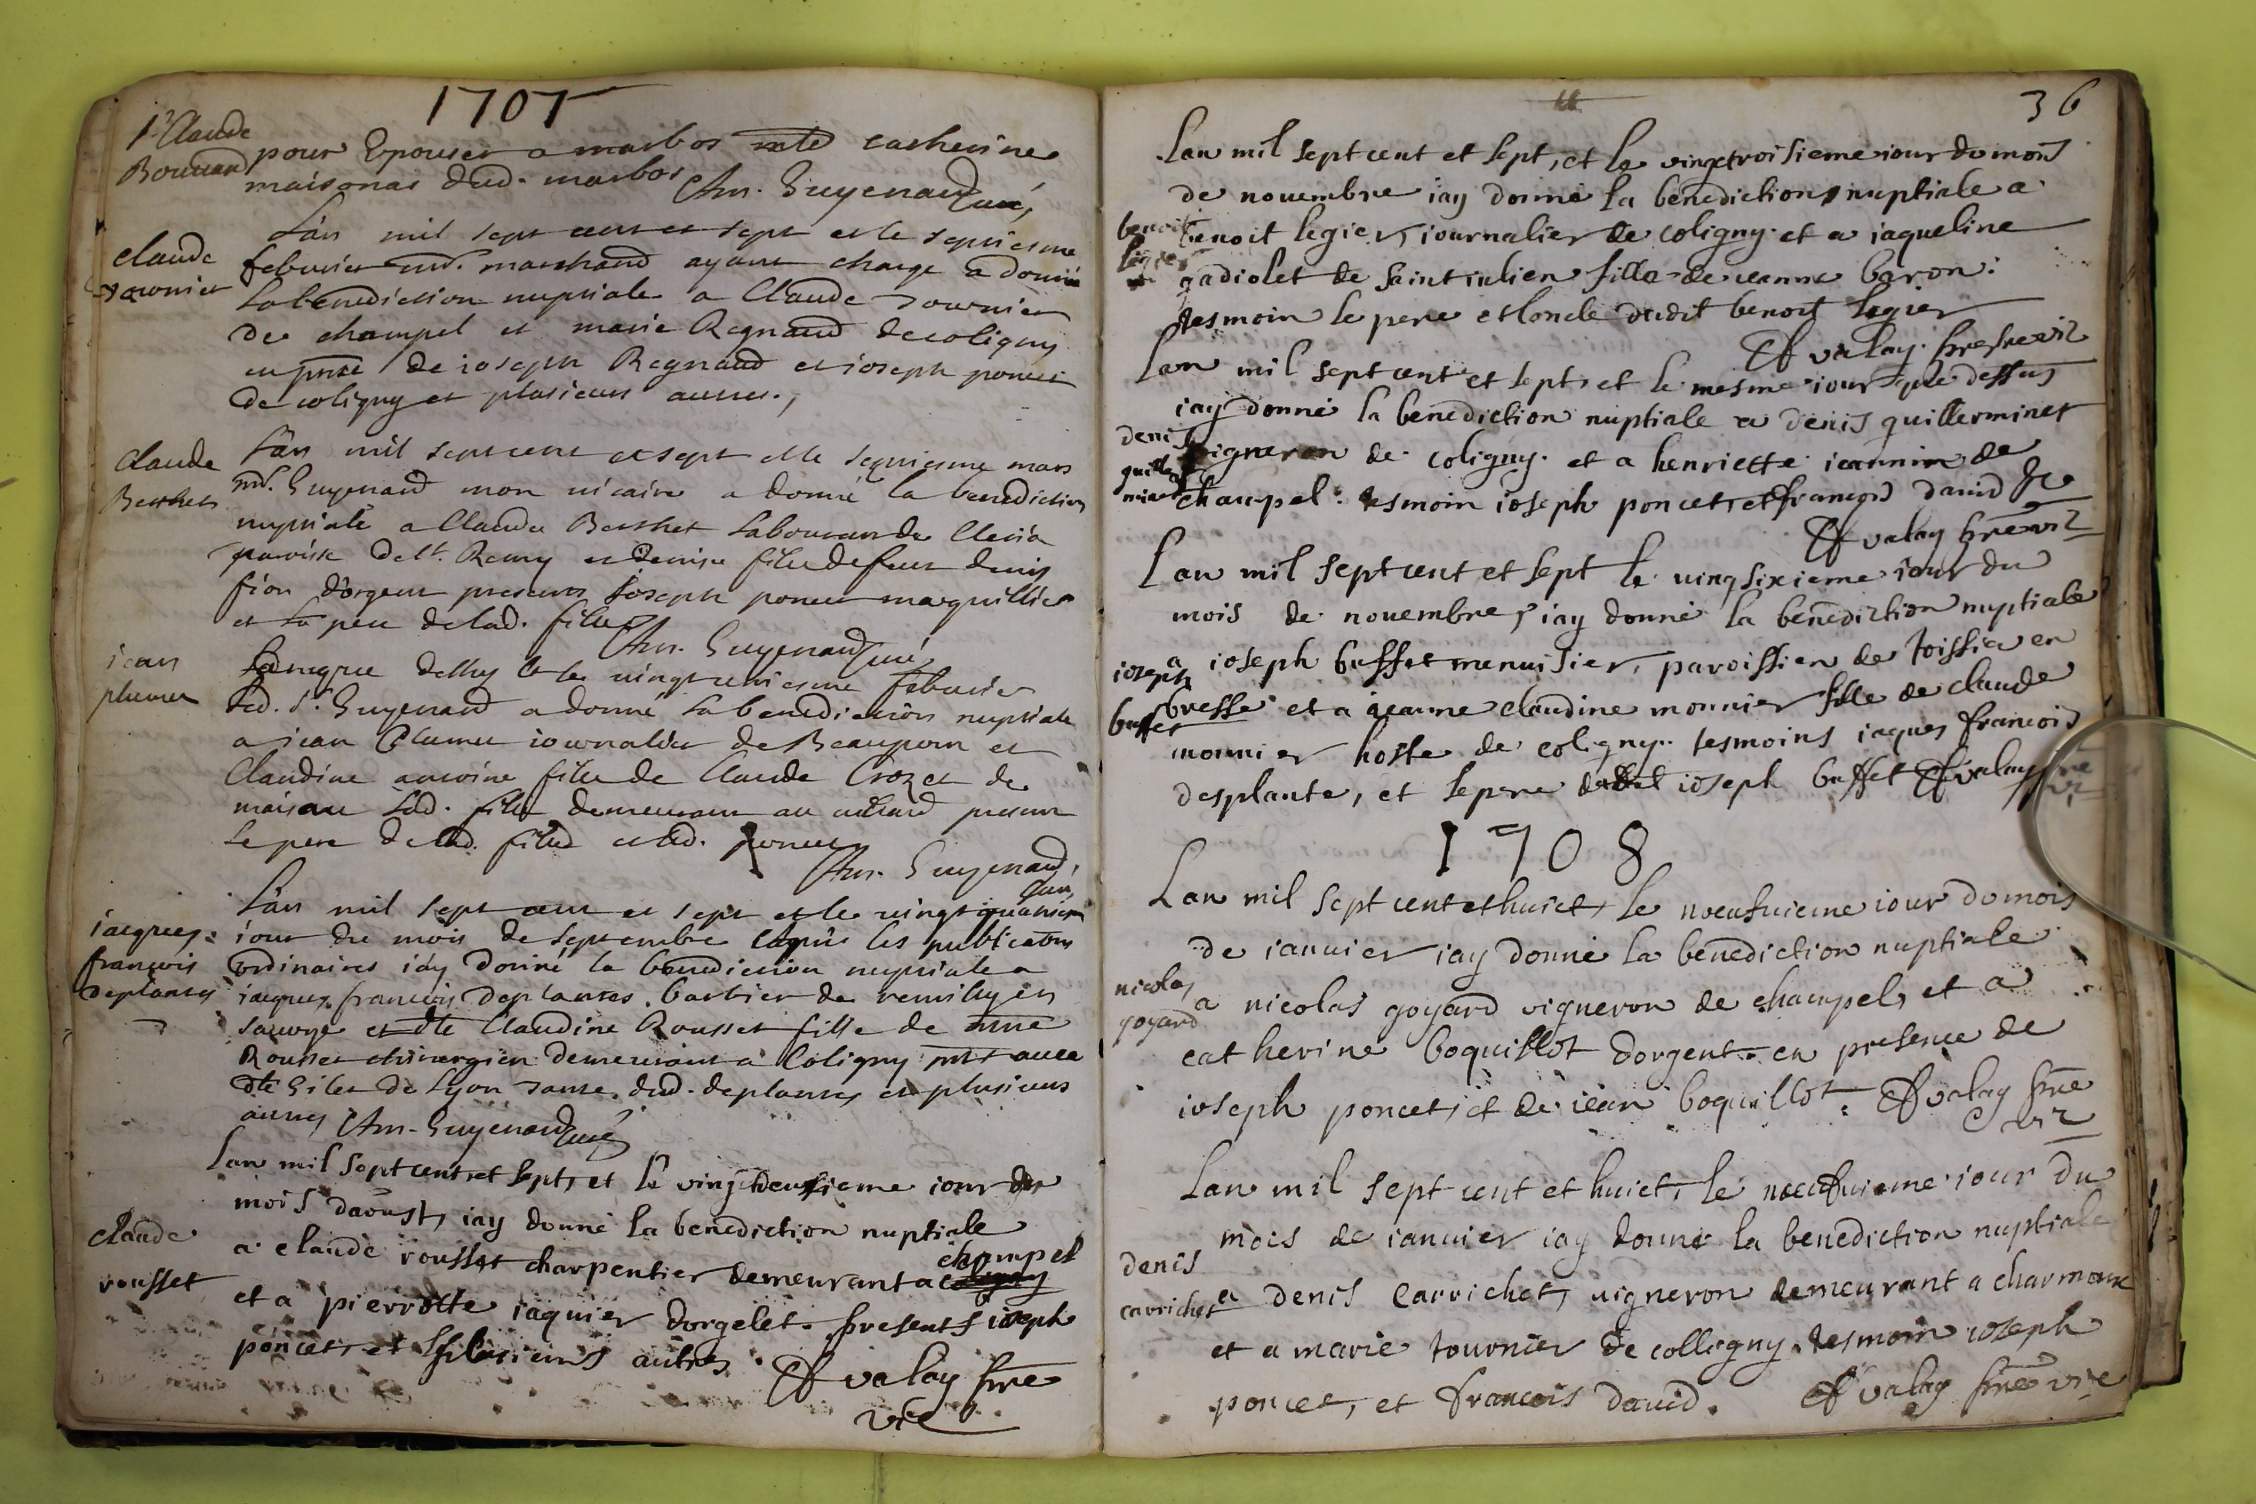 1707
Claude
Bouuard
pour Epouser a marbos catherine
maisonas dud. marbos Am. Guyenard curé
Claude
tournier
L'an mil sept cent et sept et le septiesme
febvrier mr. marchand ayant charge a donné
la benediction nuptiale a Claude tournier
de champel et marie Regnaud de coligny
en pnce de ioseph Regnaud et ioseph poncet
de coligny et plusieurs autres.
Claude
Berthet
L'an mil sept cent et sept et le septiesme mars
mr. Guyenard mon vicaire a donné la benediction
nuptiale a Claude Berthet Laboureur de Cleria
parroisse de st. Remy et denise fille de feu denis
fion d'orgent presents Joseph poncet marguillier
et le pere de lad. fille Am. Guyenard curé
iean
plumet
La mesme et le vingt uniesme febvrier
led. Sr. Guyenard a donné la benediction nuptiale
a iean Plumet iournalier de Beaupom et
Claudine antoine fille de Claude Crozet de
lad. fille demeurant au present
le pere de lad. fille et led. poncet
Am. Guyenard
curé
iacques
francois
deplantes
L'an mil sept cent et sept et le vingt quatriem
iour du mois de septembre apres les publications
ordinaires i'ay donné la benediction nuptiale a
iacques francois deplantes barbier de remilly en
savoye et dlle Claudine Rousset fille de
Rousset chirurgien demeurant a Coligny
dlle Gilet de Lyon tante dud. deplantes et plusieurs
autres Am. Guyenard curé
Claude
rousset
Lan mil sept cent et sept, et le vingtdeusieme iour du
mois daoust, iay donné la benediction nuptiale
a claude rousset charpentier demeurant a champel
et a pierrotte iaquier dorgelet. presents ioseph
poncet, et plusieurs autres. Cf valay pre
vic
36
Lan mil sept cent et sept, et le vingttroisieme iour du mois
de novembre iay donné la benediction nuptiale a
benoit
legier
benoit legier, iournalier de coligny et a iaqueline
gadiolet de saint iulien fille de ieanne baron:
tesmoin le pere et loncle dudit benoit legier
Cf valay. pretre vic
Lan mil sept cent et sept, et le mesme iour que dessus
iay donné la benediction nuptiale a denis quillerminet
denis
quiller
minet
vigneron de coligny. et a henriette ieannin de
champel: tesmoin ioseph poncet, et francois david &c
Cf valay pre vic
Lan mil sept cent et sept le vingsixieme iour du
mois de novembre, iay donné la benediction nuptiale
ioseph
buffet
a ioseph buffet menuisier, paroissien de toissia en
bresse et a ieanne claudine monnier fille de claude
monnier hoste de coligny. tesmoins iaques francois
desplante, et le pere dudit ioseph buffet Cf valay pre
vic
1708
Lan mil sept cent et huict, le noeufuieme iour du mois
de ianvier iay donné la benediction nuptiale
nicolas
goyard
a nicolas goyard vigneron de champel, et a
catherine boquillot dorgent. en presence de
ioseph poncet, et de iean boquillot. Cf valay pre
vic
Lan mil sept cent et huict, le noeufuieme iour du
mois de ianvier iay donné la benediction nuptiale
denis
carrichet
a denis Carrichet, vigneron demeurant a charmoux
et a marie tournier de colligny. tesmoin ioseph
poncet, et francois david. Cf valay pre vic